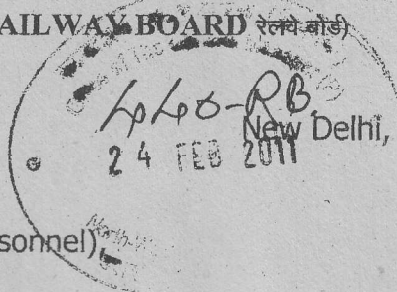 AILWAY BOARD रेलवे बोर्ड)
440-RB
New Delhi,
24 FEB 2011
sonnel),